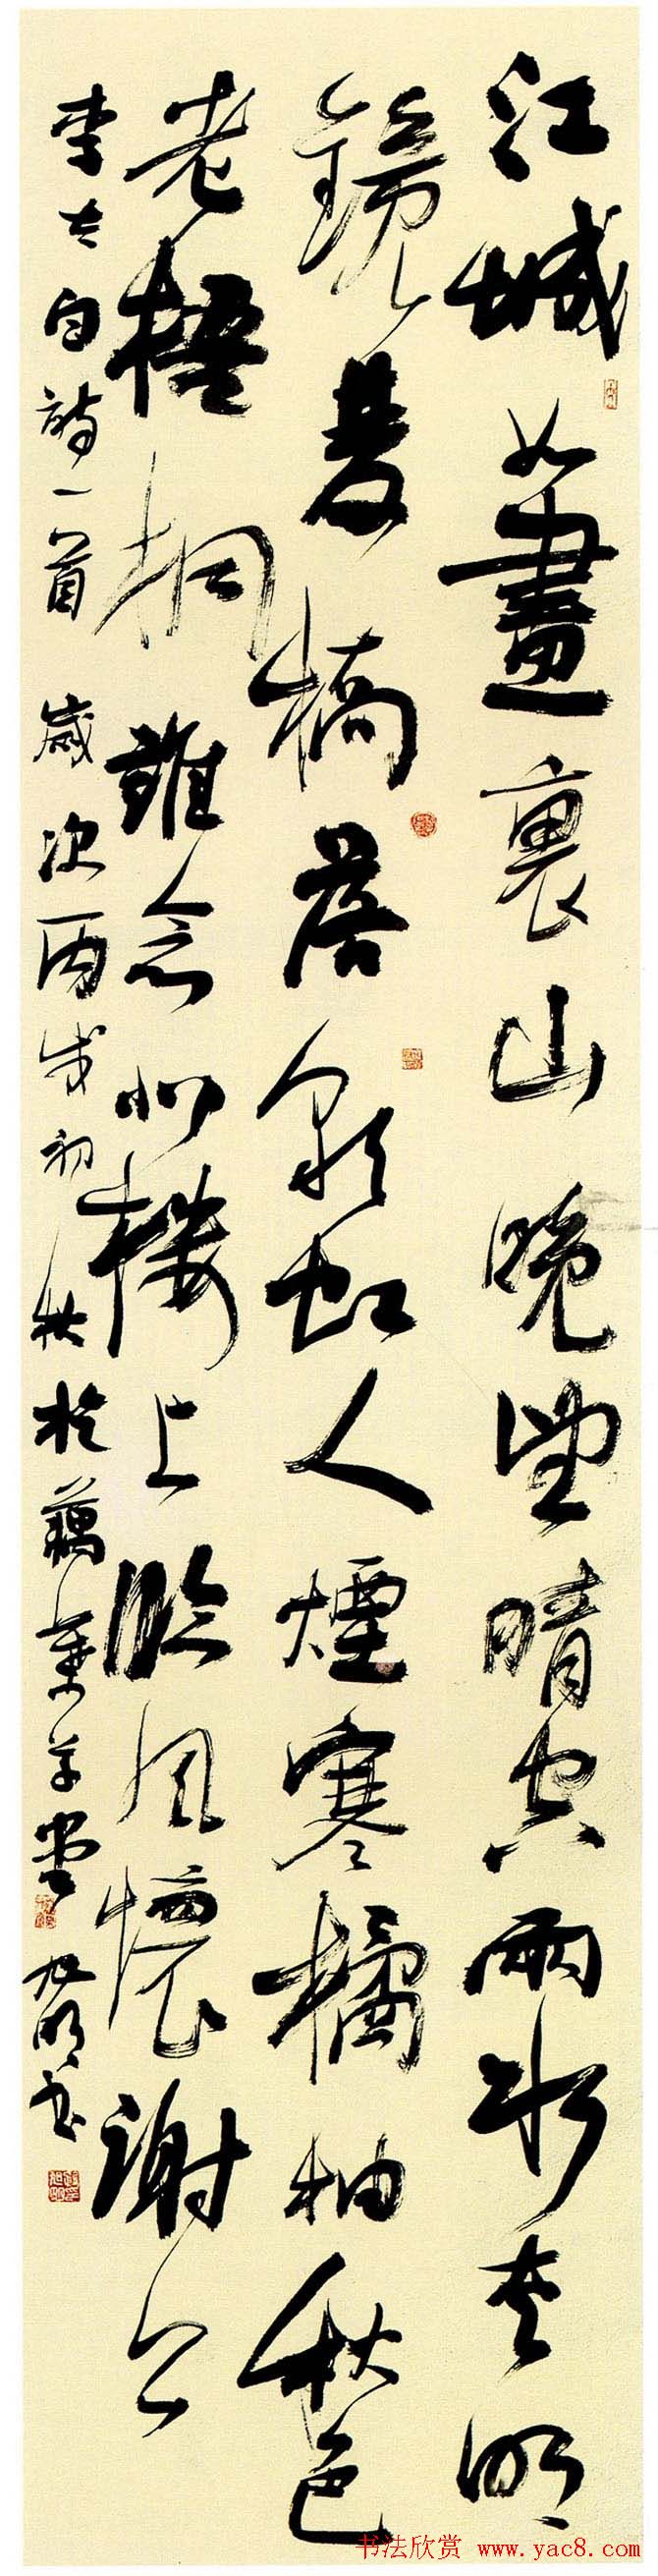 江城如畫裏山晚望晴空兩水夾明
鏡雙橋落彩虹人煙寒橘柚秋色
老梧桐誰念北樓上臨風懷謝公
李太白詩一首 歲次丙戌初秋於藕葉草堂 旭明書
书法欣赏 www.yac8.com